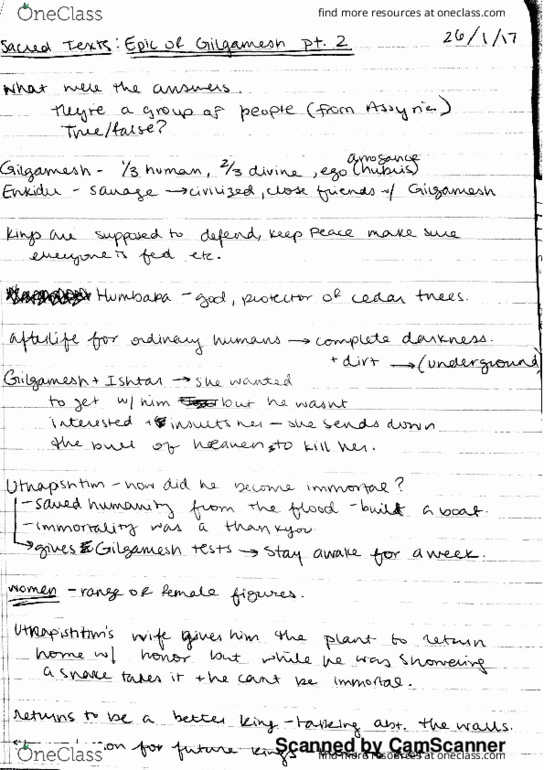 OneClass
find more resources at oneclass.com
Sacred Texts: Epic of Gilgamesh pt. 2
26/1/17
What were the answers.
They're a group of people (from Assyria)
True/false?
arrogance
Gilgamesh - 1/3 human, 2/3 divine, ego (hubris)
Enkidu - savage → civilized, close friends w/ Gilgamesh
Kings are supposed to defend, keep peace make sure
everyone is fed etc.
Humbaba - god, protector of cedar trees.
afterlife for ordinary humans → complete darkness.
+ dirt → (underground)
Gilgamesh + Ishtar → she wanted
to get w/ him but he wasnt
interested + insults her - she sends down
the bull of heaven to kill her.
Utnapishtim - how did he become immortal?
- saved humanity from the flood - built a boat.
- immortality was a thankyou
→ gives Gilgamesh tests → stay awake for a week.
women - range of female figures.
Utnapishtim's wife gives him the plant to return
home w/ honor but while he was showering
a snake takes it + he cant be immortal.
Returns to be a better king - talking abt. the walls.
for future kings
OneClass
Scanned by CamScanner
find more resources at oneclass.com